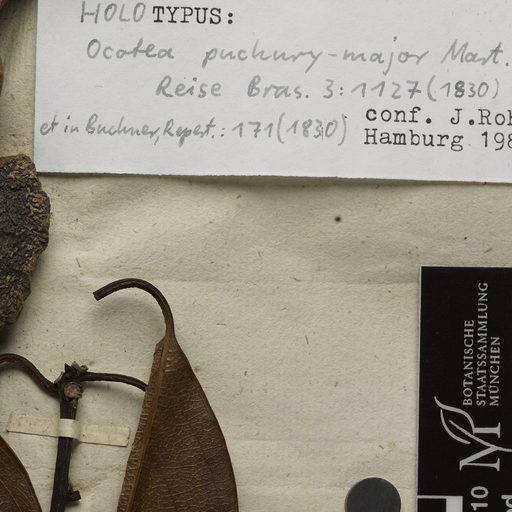 HOLOTYPUS:
Ocotea puchury-major Mart.
Reise Bras. 3:1127(1830)
et in Buchner, Repert.: 171(1830)
conf. J.Roh
Hamburg 198
BOTANISCHE
STAATSSAMMLUNG
MÜNCHEN
M
10